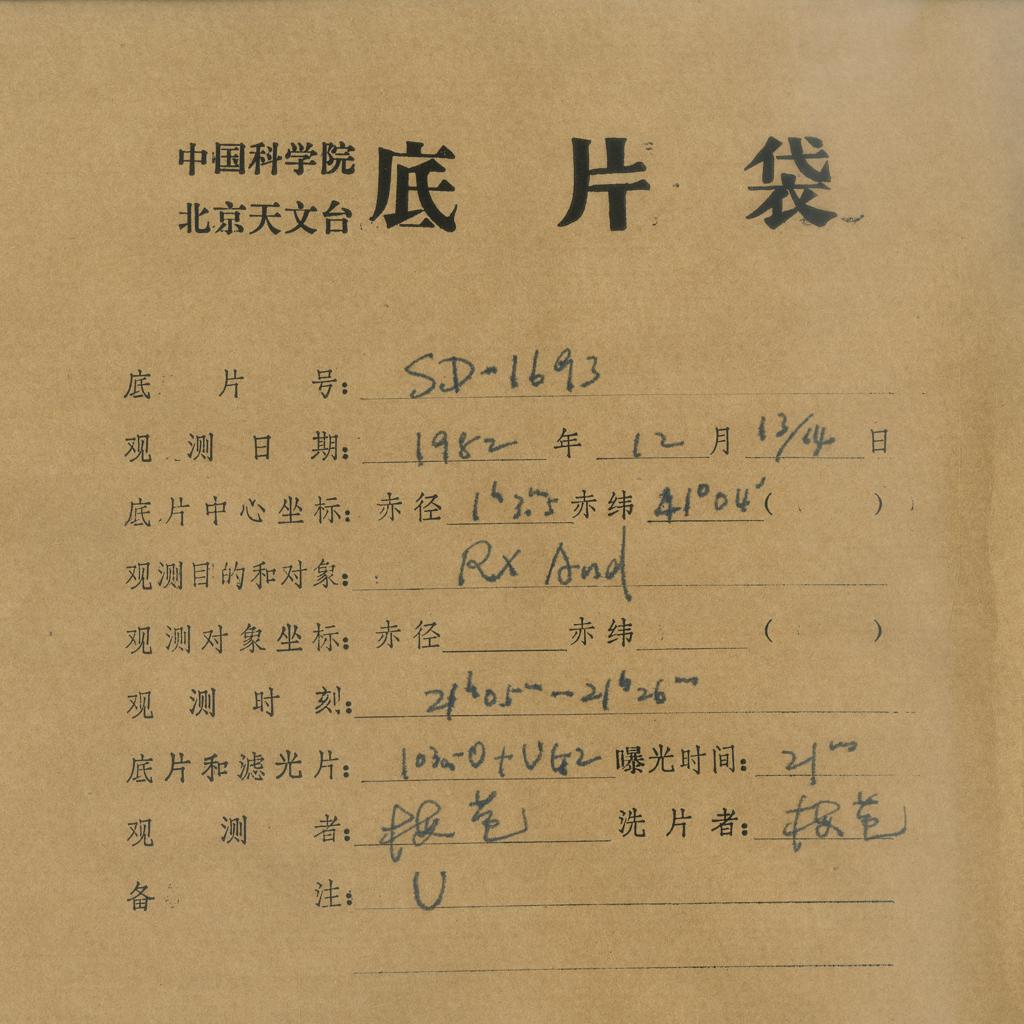 中国科学院
北京天文台
底片袋
底片号：SD-1693
观测日期：1982年12月13/14日
底片中心坐标：赤径1ʰ3ᵐ.5赤纬41°04′( )
观测目的和对象：RX And
观测对象坐标：赤径 赤纬 ( )
观测时刻：21ʰ05ᵐ—21ʰ26ᵐ
底片和滤光片：103a-O+UG2 曝光时间：21ᵐ
观测者： 洗片者：
备注：U